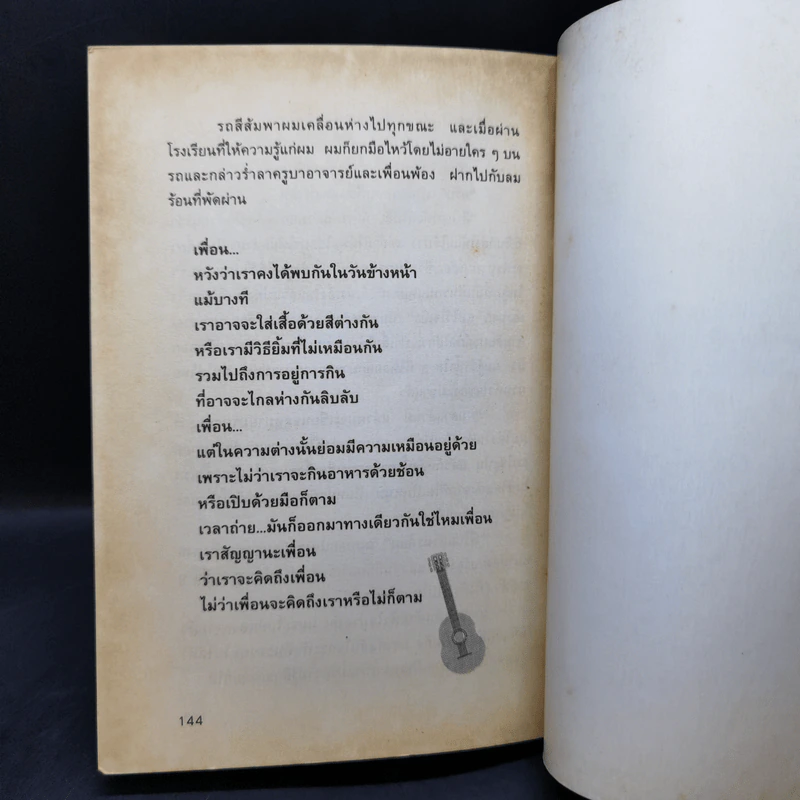 รถสีส้มพาผมเคลื่อนห่างไปทุกขณะ และเมื่อผ่าน
โรงเรียนที่ให้ความรู้แก่ผม ผมก็ยกมือไหว้โดยไม่อายใคร ๆ บน
รถและกล่าวร่ำลาครูบาอาจารย์และเพื่อนพ้อง ฝากไปกับลม
ร้อนที่พัดผ่าน
เพื่อน...
หวังว่าเราคงได้พบกันในวันข้างหน้า
แม้บางที
เราอาจจะใส่เสื้อด้วยสีต่างกัน
หรือเรามีวิธียิ้มที่ไม่เหมือนกัน
รวมไปถึงการอยู่การกิน
ที่อาจจะไกลห่างกันลิบลับ
เพื่อน...
แต่ในความต่างนั้นย่อมมีความเหมือนอยู่ด้วย
เพราะไม่ว่าเราจะกินอาหารด้วยช้อน
หรือเปิบด้วยมือก็ตาม
เวลาถ่าย...มันก็ออกมาทางเดียวกันใช่ไหมเพื่อน
เราสัญญานะเพื่อน
ว่าเราจะคิดถึงเพื่อน
ไม่ว่าเพื่อนจะคิดถึงเราหรือไม่ก็ตาม
144